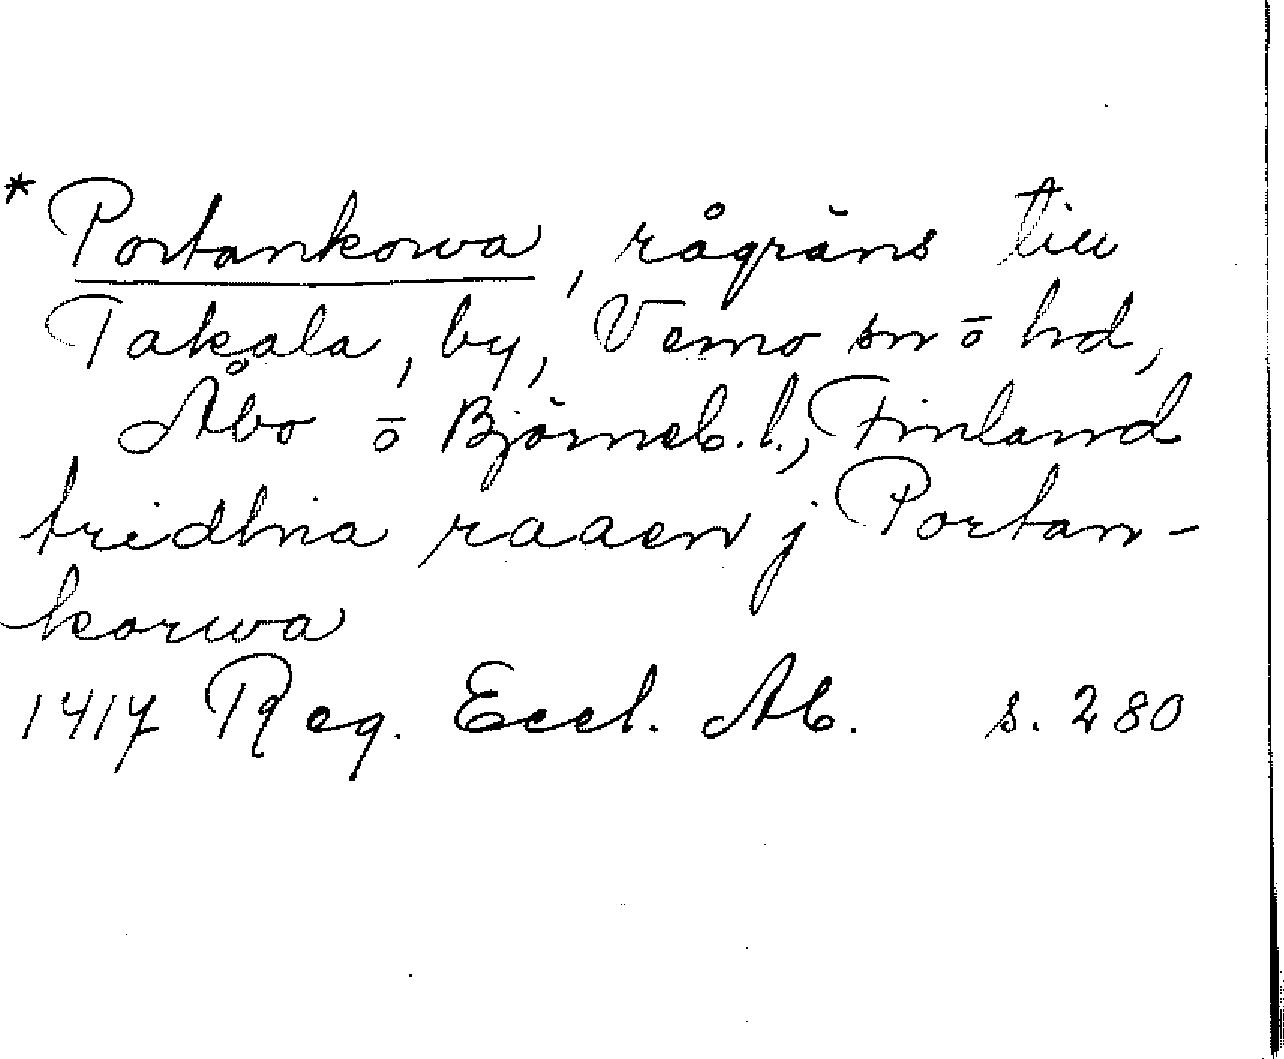 * Portankorwa, rågräns till
Takala, by, Vemo sn o hd,
Åbo o Björneb. l., Finland
tridhia raaen j Portan-
korwa
1417 Reg. Eccl. Ab. s. 280